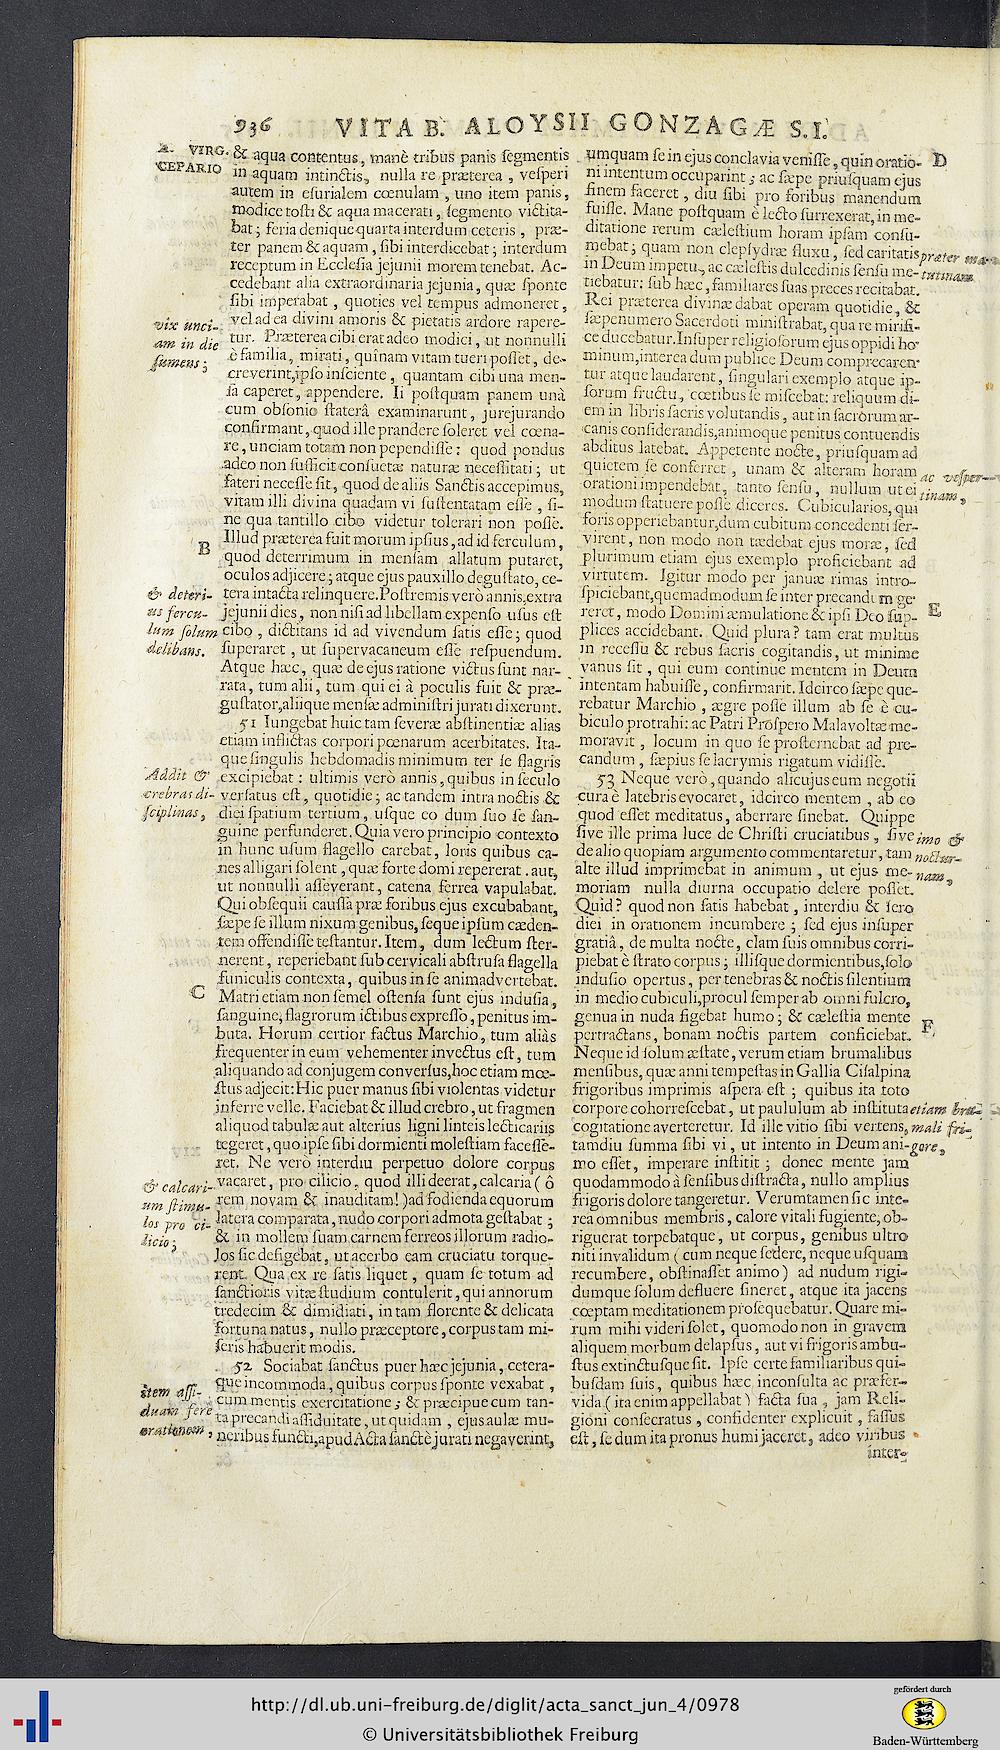 936 VITA B. ALOYSII GONZAGÆ S.I.
A. VIRG.
CEPARIO
& aqua contentus, manè tribus panis ſegmentis
in aquam intinctis, nulla re præterea, veſperi
autem in eſurialem cœnulam, uno item panis,
modice toſti & aqua macerati, ſegmento victita-
bat; feria denique quarta interdum ceteris, præ-
ter panem & aquam, ſibi interdicebat; interdum
receptum in Eccleſia jejunii morem tenebat. Ac-
cedebant alia extraordinaria jejunia, quæ ſponte
ſibi imperabat, quoties vel tempus admoneret,
vel ad ea divini amoris & pietatis ardore rapere-
tur. Præterea cibi erat adeo modici, ut nonnulli
è familia, mirati, quinam vitam tueri poſſet, de-
creverint, ipſo inſciente, quantam cibi una men-
ſa caperet, appendere. Ii poſtquam panem unà
cum obſonio ſtaterâ examinarunt, jurejurando
confirmant, quod ille prandere ſoleret vel cœna-
re, unciam totam non pependiſſe: quod pondus
adeo non ſufficit conſuetæ naturæ neceſſitati; ut
fateri neceſſe ſit, quod de aliis Sanctis accepimus,
vitam illi divina quadam vi ſuſtentatam eſſe, ſi-
ne qua tantillo cibo videtur tolerari non poſſe.
Illud præterea fuit morum ipſius, ad id ferculum,
quod deterrimum in menſam allatum putaret,
oculos adjicere; atque ejus pauxillo deguſtato, ce-
tera intacta relinquere. Poſtremis verò annis, extra
jejunii dies, non niſi ad libellam expenſo uſus eſt
cibo, dictitans id ad vivendum ſatis eſſe; quod
ſuperaret, ut ſupervacaneum eſſe reſpuendum.
Atque hæc, quæ de ejus ratione victus ſunt nar-
rata, tum alii, tum qui ei à poculis fuit & præ-
guſtator, aliique menſæ adminiſtri jurati dixerunt.
51 Iungebat huic tam ſeveræ abſtinentiæ alias
etiam inflictas corpori pœnarum acerbitates. Ita-
que ſingulis hebdomadis minimum ter ſe flagris
excipiebat: ultimis verò annis, quibus in ſeculo
verſatus eſt, quotidie; ac tandem intra noctis &
diei ſpatium tertium, uſque eo dum ſuo ſe ſan-
guine perfunderet. Quia vero principio contexto
in hunc uſum flagello carebat, loris quibus ca-
nes alligari ſolent, quæ forte domi repererat, aut,
ut nonnulli aſſeverant, catena ferrea vapulabat.
Qui obſequii cauſſa præ foribus ejus excubabant,
ſæpe ſe illum nixum genibus, ſeque ipſum cæden-
tem offendiſſe teſtantur. Item, dum lectum ſter-
nerent, reperiebant ſub cervicali abſtruſa flagella
funiculis contexta, quibus in ſe animadvertebat.
Matri etiam non ſemel oſtenſa ſunt ejus induſia,
ſanguine, flagrorum ictibus expreſſo, penitus im-
buta. Horum certior factus Marchio, tum aliàs
frequenter in eum vehementer invectus eſt, tum
aliquando ad conjugem converſus, hoc etiam mœ-
ſtus adjecit: Hic puer manus ſibi violentas videtur
inferre velle. Faciebat & illud crebro, ut fragmen
aliquod tabulæ aut alterius ligni linteis lecticariis
tegeret, quo ipſe ſibi dormienti moleſtiam faceſſe-
ret. Ne verò interdiu perpetuo dolore corpus
vacaret, pro cilicio, quod illi deerat, calcaria (ô
rem novam & inauditam!) ad fodienda equorum
latera comparata, nudo corpori admota geſtabat;
& in mollem ſuam carnem ferreos illorum radio-
los ſic defigebat, ut acerbo eam cruciatu torque-
rent. Qua ex re ſatis liquet, quam ſe totum ad
ſanctioris vitæ ſtudium contulerit, qui annorum
tredecim & dimidiati, in tam florente & delicata
fortuna natus, nullo præceptore, corpus tam mi-
ſeris habuerit modis.
52 Sociabat ſanctus puer hæc jejunia, cetera-
que incommoda, quibus corpus ſponte vexabat,
cum mentis exercitatione; & præcipue cum tan-
ta precandi aſſiduitate, ut quidam, ejus aulæ mu-
neribus functi, apud Acta ſanctè jurati negaverint,
vix unci-
am in die
ſumens;
B
& deteri-
us fercu-
lum ſolum
delibans.
Addit &
crebras di-
ſciplinas,
C
& calcari-
um ſtimu-
los pro ci-
licio;
item aſſi-
duam fere
orationem,
umquam ſe in ejus conclavia veniſſe, quin oratio-
ni intentum occuparint; ac ſæpe priuſquam ejus
finem faceret, diu ſibi pro foribus manendum
fuiſſe. Mane poſtquam è lecto ſurrexerat, in me-
ditatione rerum cæleſtium horam ipſam conſu-
mebat; quam non clepſydræ fluxu, ſed caritatis
in Deum impetu, ac cæleſtis dulcedinis ſenſu me-
tiebatur: ſub hæc, familiares ſuas preces recitabat.
Rei præterea divinæ dabat operam quotidie, &
ſæpenumero Sacerdoti miniſtrabat, qua re mirifi-
ce ducebatur. Inſuper religioſorum ejus oppidi ho-
minum, interea dum publice Deum comprecaren-
tur atque laudarent, ſingulari exemplo atque ip-
ſorum fructu, cœtibus ſe miſcebat: reliquum di-
em in libris ſacris volutandis, aut in ſacrorum ar-
canis conſiderandis, animoque penitus contuendis
abditus latebat. Appetente nocte, priuſquam ad
quietem ſe conferret, unam & alteram horam
orationi impendebat, tanto ſenſu, nullum ut ei
modum ſtatuere poſſe diceres. Cubicularios, qui
foris opperiebantur, dum cubitum concedenti ſer-
virent, non modo non tædebat ejus moræ, ſed
plurimum etiam ejus exemplo proficiebant ad
virtutem. Igitur modo per januæ rimas intro-
ſpiciebant, quemadmodum ſe inter precandum ge-
reret, modo Domini æmulatione & ipſi Deo ſup-
plices accidebant. Quid plura? tam erat multus
in receſſu & rebus ſacris cogitandis, ut minime
vanus ſit, qui eum continue mentem in Deum
intentam habuiſſe, confirmarit. Idcirco ſæpe que-
rebatur Marchio, ægre poſſe illum ab ſe è cu-
biculo protrahi: ac Patri Proſpero Malavoltæ me-
moravit, locum in quo ſe proſternebat ad pre-
candum, ſæpius ſe lacrymis rigatum vidiſſe.
53 Neque verò, quando alicujus eum negotii
cura è latebris evocaret, idcirco mentem, ab eo
quod eſſet meditatus, aberrare ſinebat. Quippe
ſive ille prima luce de Chriſti cruciatibus, ſive
de alio quopiam argumento commentaretur, tam
alte illud imprimebat in animum, ut ejus me-
moriam nulla diurna occupatio delere poſſet.
Quid? quod non ſatis habebat, interdiu & ſero
diei in orationem incumbere; ſed ejus inſuper
gratiâ, de multa nocte, clam ſuis omnibus corri-
piebat è ſtrato corpus; illiſque dormientibus, ſolo
induſio opertus, per tenebras & noctis ſilentium
in medio cubiculi, procul ſemper ab omni fulcro,
genua in nuda figebat humo; & cæleſtia mente
pertractans, bonam noctis partem conficiebat.
Neque id ſolum æſtate, verum etiam brumalibus
menſibus, quæ anni tempeſtas in Gallia Ciſalpina
frigoribus imprimis aſpera eſt; quibus ita toto
corpore cohorreſcebat, ut paululum ab inſtituta
cogitatione averteretur. Id ille vitio ſibi vertens,
tamdiu ſumma ſibi vi, ut intento in Deum ani-
mo eſſet, imperare inſtitit; donec mente jam
quodammodo à ſenſibus diſtracta, nullo amplius
frigoris dolore tangeretur. Verumtamen ſic inte-
rea omnibus membris, calore vitali fugiente, ob-
riguerat torpebatque, ut corpus, genibus ultro
niti invalidum (cum neque ſedere, neque uſquam
recumbere, obſtinaſſet animo) ad nudum rigi-
dumque ſolum defluere ſineret, atque ita jacens
cœptam meditationem proſequebatur. Quare mi-
rum mihi videri ſolet, quomodo non in gravem
aliquem morbum delapſus, aut vi frigoris ambu-
ſtus extinctuſque ſit. Ipſe certe familiaribus qui-
buſdam ſuis, quibus hæc inconſulta ac præfer-
vida (ita enim appellabat) facta ſua, jam Reli-
gioni conſecratus, confidenter explicuit, faſſus
eſt, ſe dum ita pronus humi jaceret, adeo viribus
inter-
D
præter ma-
tutinam
ac veſper-
tinam,
E
imo &
noctur-
nam,
F
etiam bru-
mali fri-
gore,
http://dl.ub.uni-freiburg.de/diglit/acta_sanct_jun_4/0978
© Universitätsbibliothek Freiburg
gefördert durch
Baden-Württemberg